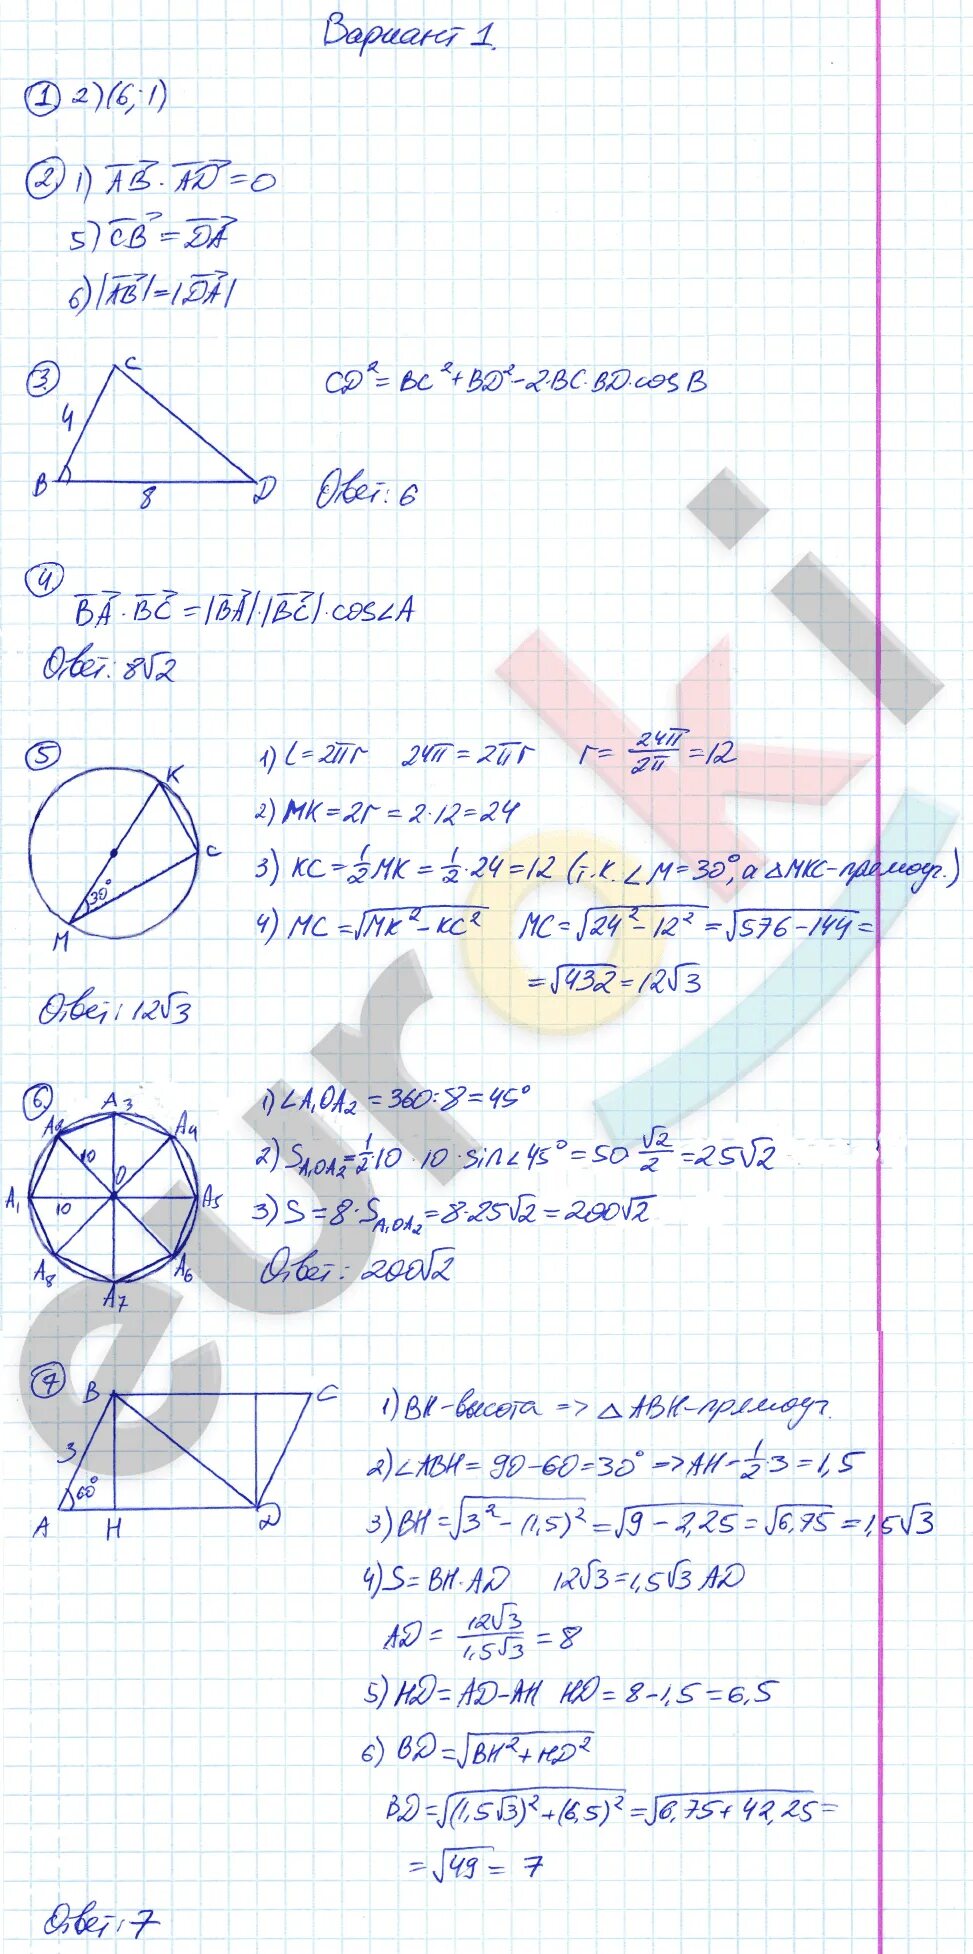 Вариант 1.
1. 2) (6; -1)
2. 1) AB · AD = 0
5) CB = DA
6) |AB| = |DA|
3. C 4 B 8 D
CD² = BC² + BD² - 2·BC·BD·cosB
Ответ: 6
4.
BA · BC = |BA|·|BC|·cos∠A
Ответ: 8√2
5
K C 30° M
1) C = 2πr 24π = 2πr r = 24π/2π = 12
2) MK = 2r = 2·12 = 24
3) KC = 1/2 MK = 1/2 · 24 = 12 (т.к. ∠M = 30°, а △MKC - прямоуг.)
4) MC = √(MK² - KC²) MC = √(24² - 12²) = √(576 - 144) =
= √432 = 12√3
Ответ: 12√3
6.
A3 A2 A4 10 O A1 10 A5 A8 A6 A7
1) ∠A₁OA₂ = 360:8 = 45°
2) S A₁OA₂ = 1/2 10 · 10 · sin∠45° = 50 √2/2 = 25√2
3) S = 8·S A₁OA₂ = 8·25√2 = 200√2
Ответ: 200√2
7
B C 3 60° A H D
1) BH - высота => △ABH - прямоуг.
2) ∠ABH = 90 - 60 = 30° => AH - 1/2·3 = 1,5
3) BH = √(3² - (1,5)²) = √(9 - 2,25) = √6,75 = 1,5√3
4) S = BH·AD 12√3 = 1,5√3 AD
AD = 12√3/1,5√3 = 8
5) HD = AD - AH HD = 8 - 1,5 = 6,5
6) BD = √(BH² + HD²)
BD = √((1,5√3)² + (6,5)²) = √(6,75 + 42,25) =
= √49 = 7
Ответ: 7
euroki